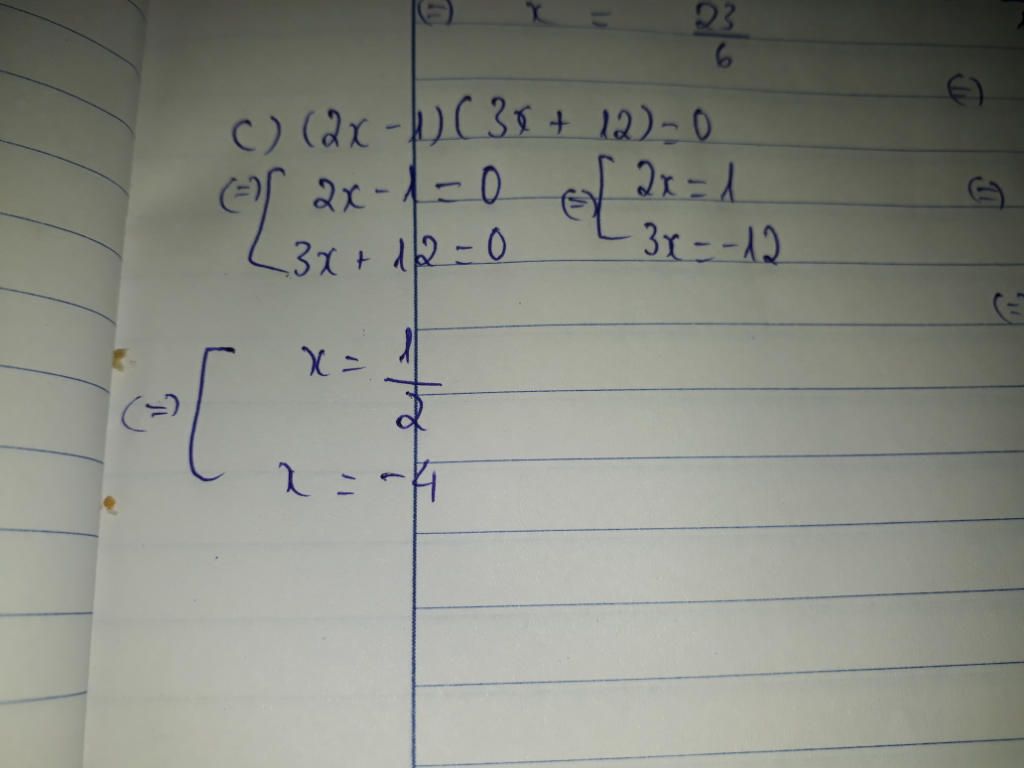 (=) x = 23/6
(=)
c) (2x - 1)(3x + 12) = 0
(=) [ 2x - 1 = 0 (=) [ 2x = 1 (=)
3x + 12 = 0 3x = -12
(=
x = 1/2
(=) [
x = -4